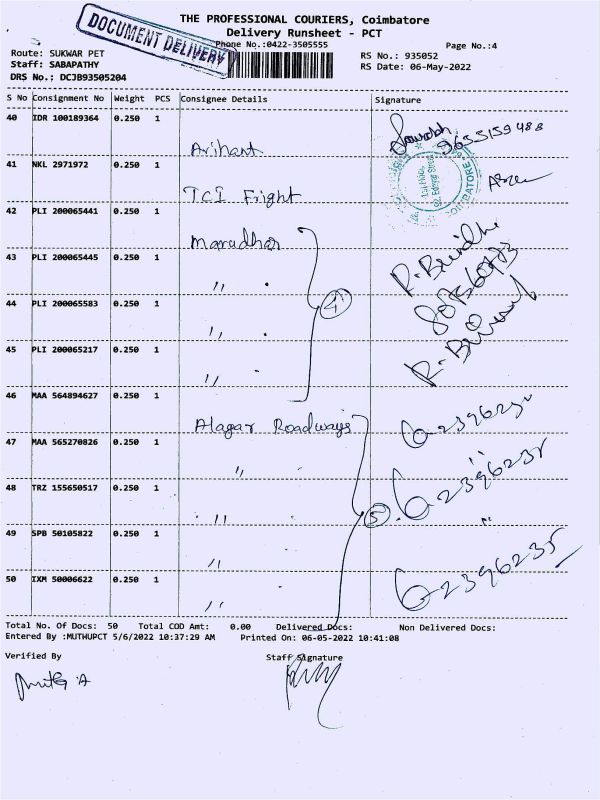 THE PROFESSIONAL COURIERS, Coimbatore
DOCUMENT DELIVERY
Delivery Runsheet - PCT
Phone No.:0422-3505555
Page No.:4
Route: SUKWAR PET
RS No.: 935052
Staff: SABAPATHY
RS Date: 06-May-2022
DRS No.: DCJB93505204
S No Consignment No Weight PCS Consignee Details Signature
40 IDR 100189364 0.250 1
Arihant
41 NKL 2971972 0.250 1
TCI Fright
42 PLI 200065441 0.250 1
Marudhar
43 PLI 200065445 0.250 1
"
44 PLI 200065583 0.250 1
" 4
45 PLI 200065217 0.250 1
"
46 MAA 564894627 0.250 1
Alagar Roadways
47 MAA 565270826 0.250 1
"
48 TRZ 155650517 0.250 1
" 5
49 SPB 50105822 0.250 1
"
50 IXM 50006622 0.250 1
" 2396235
COIMBATORE
Total No. Of Docs: 50 Total COD Amt: 0.00 Delivered Docs: Non Delivered Docs:
Entered By :MUTHUPCT 5/6/2022 10:37:29 AM Printed On: 06-05-2022 10:41:08
Verified By Staff Signature